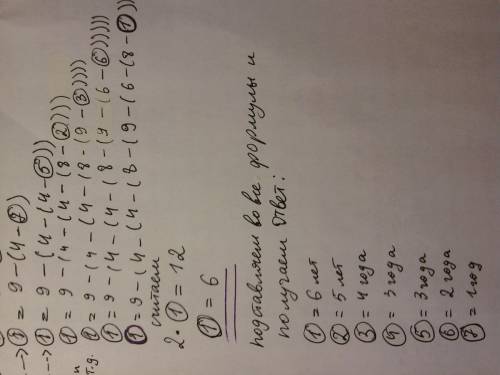 --> ① = 9 - (4 - ⑦)
--> ① = 9 - (4 - (4 - ⑤)))
① = 9 - (4 - (4 - (8 - ②))))
и т.д. ① = 9 - (4 - (4 - (8 - (9 - ③)))))
① = 9 - (4 - (4 - (8 - (9 - (6 - ⑥))))))
① = 9 - (4 - (4 - (8 - (9 - (6 - (8 - ①))
считаем
2 · ① = 12
① = 6
подставляем во все формулы и
получаем ответ:
① = 6 лет
② = 5 лет
③ = 4 года
④ = 3 года
⑤ = 3 года
⑥ = 2 года
⑦ = 1 год